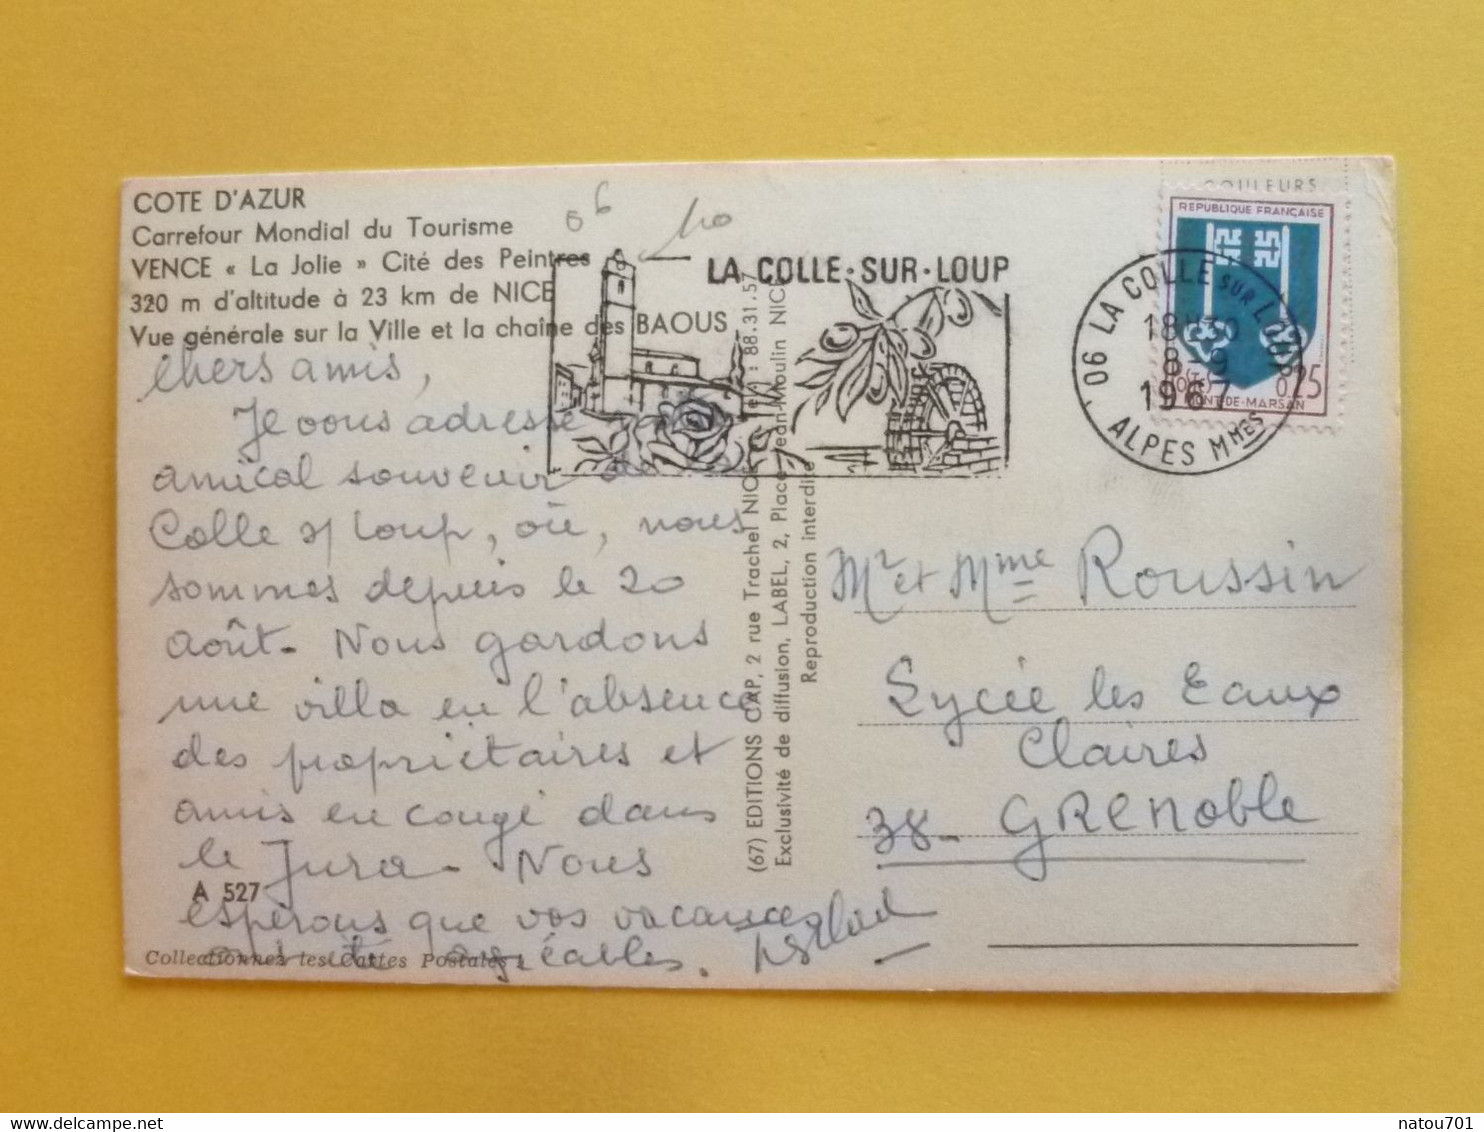 COTE D'AZUR
Carrefour Mondial du Tourisme
VENCE « La Jolie » Cité des Peintres
320 m d'altitude à 23 km de NICE
Vue générale sur la Ville et la chaîne des BAOUS
06
LA COLLE·SUR·LOUP
06 LA COLLE SUR LOUP
18H30
8-9
1967
ALPES MMES
COULEURS
REPUBLIQUE FRANÇAISE
0,25
MONT-DE-MARSAN
chers amis,
Je vous adresse
amical souvenir de
Colle s/ Loup, où, nous
sommes depuis le 20
août. Nous gardons
une villa en l'absence
des propriétaires et
amis en congé dans
le Jura. Nous
espérons que vos vacances
ont été agréables.
A 527
Collectionnez les Cartes Postales !
(67) EDITIONS CAP, 2 rue Trachel NICE Tel : 88.31.57
Exclusivité de diffusion, LABEL, 2, Place Jean-Moulin NICE
Reproduction interdite
Mr et Mme Roussin
Lycée les Eaux
Claires
38- GRENoble
natou701